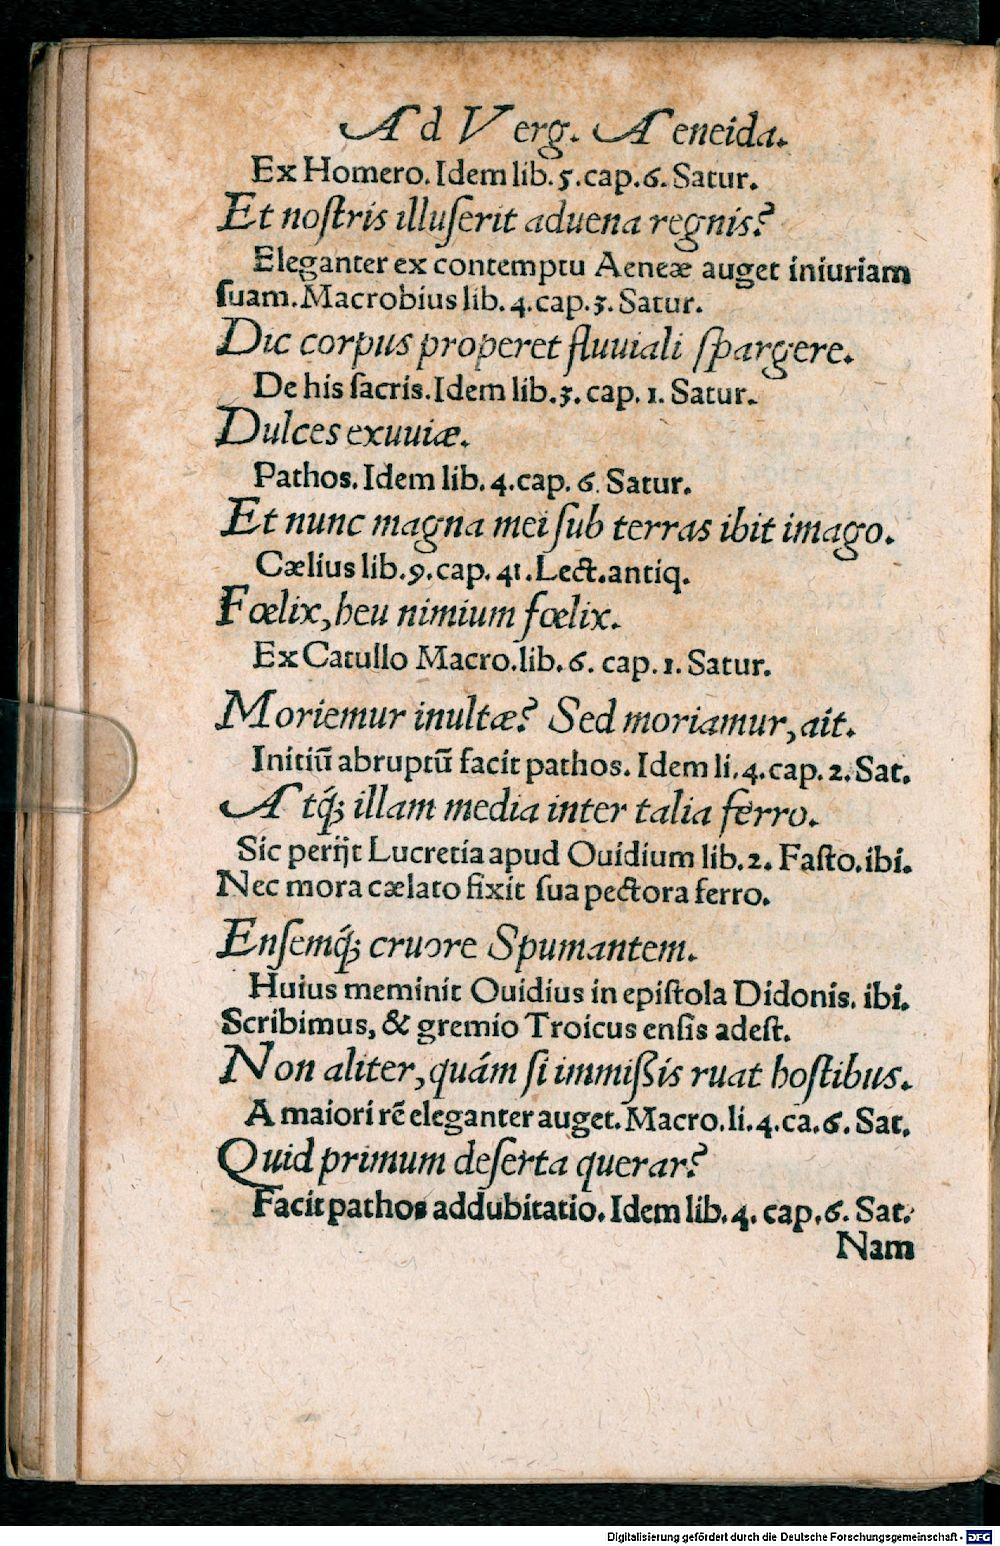 Ad Verg. Aeneida.
Ex Homero. Idem lib. 5. cap. 6. Satur.
Et noſtris illuſerit aduena regnis?
Eleganter ex contemptu Aeneæ auget iniuriam
ſuam. Macrobius lib. 4. cap. 5. Satur.
Dic corpus properet fluuiali ſpargere.
De his ſacris. Idem lib. 3. cap. 1. Satur.
Dulces exuuiæ.
Pathos. Idem lib. 4. cap. 6. Satur.
Et nunc magna mei ſub terras ibit imago.
Cælius lib. 9. cap. 41. Lect. antiq.
Fœlix, heu nimium fœlix.
Ex Catullo Macro. lib. 6. cap. 1. Satur.
Moriemur inultæ? Sed moriamur, ait.
Initiũ abruptũ facit pathos. Idem li. 4. cap. 2. Sat.
Atq́; illam media inter talia ferro.
Sic perijt Lucretia apud Ouidium lib. 2. Faſto. ibi.
Nec mora cælato fixit ſua pectora ferro.
Enſemq́; cruore Spumantem.
Huius meminit Ouidius in epiſtola Didonis. ibi.
Scribimus, & gremio Troicus enſis adeſt.
Non aliter, quám ſi immiſsis ruat hoſtibus.
A maiori rẽ eleganter auget. Macro. li. 4. ca. 6. Sat.
Quid primum deſerta querar?
Facit pathos addubitatio. Idem lib. 4. cap. 6. Sat.
Nam
Digitalisierung gefördert durch die Deutsche Forschungsgemeinschaft - DFG